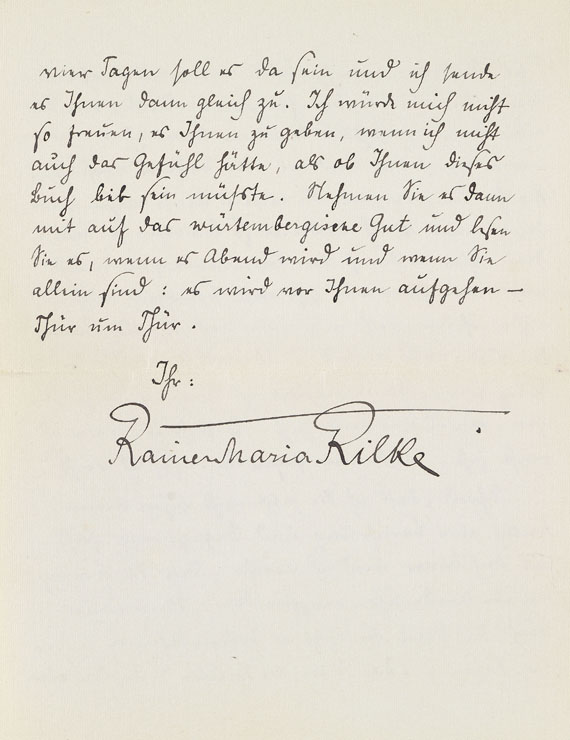 vier Tagen soll es da sein und ich sende
es Ihnen dann gleich zu. Ich würde mich nicht
so freuen, es Ihnen zu geben, wenn ich nicht
auch das Gefühl hätte, als ob Ihnen dieses
Buch lieb sein müsste. Nehmen Sie es dann
mit auf das würtembergische Gut und lesen
Sie es, wenn es Abend wird und wenn Sie
allein sind : es wird vor Ihnen aufgehen –
Thür um Thür.
Ihr:
Rainer Maria Rilke